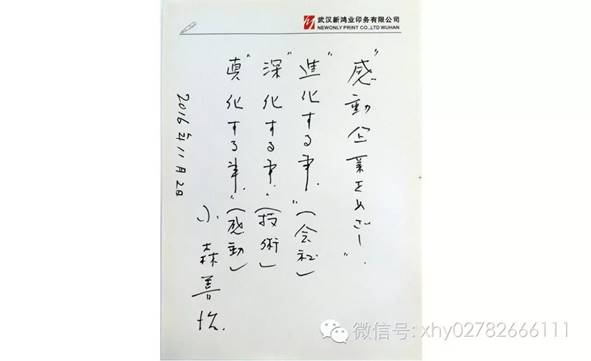 武汉新鸿业印务有限公司
NEWONLY PRINT CO.,LTD WUHAN
"感動企業をめざし"
"進化する事."(会社)
"深化する事."(技術)
"真化する事."(感動)
小森善
2016年11月2日
微信号: xhy02782666111